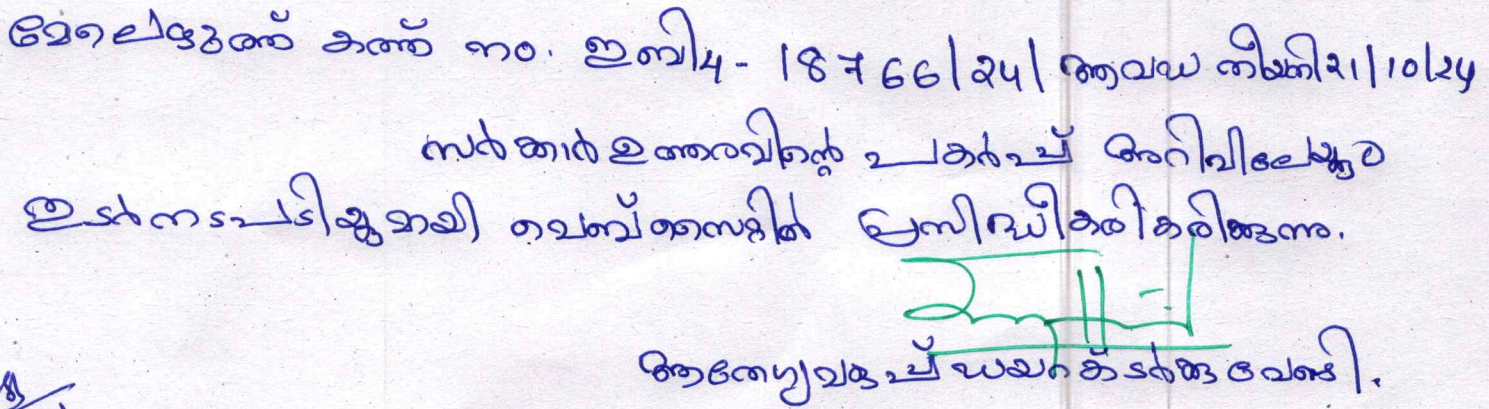 മേലെഴുത്ത് കത്ത് നം. ഇബി4-18766/24/ ആവഡ തീയതി 21/10/24
സർക്കാർ ഉത്തരവിന്റെ പകർപ്പ് അറിവിലേക്കും
തുടർനടപടിയ്ക്കുമായി വെബ്സൈറ്റിൽ പ്രസിദ്ധീകരികരിക്കുന്നു.
ആരോഗ്യവകുപ്പ് ഡയറക്ടർക്കു വേണ്ടി.